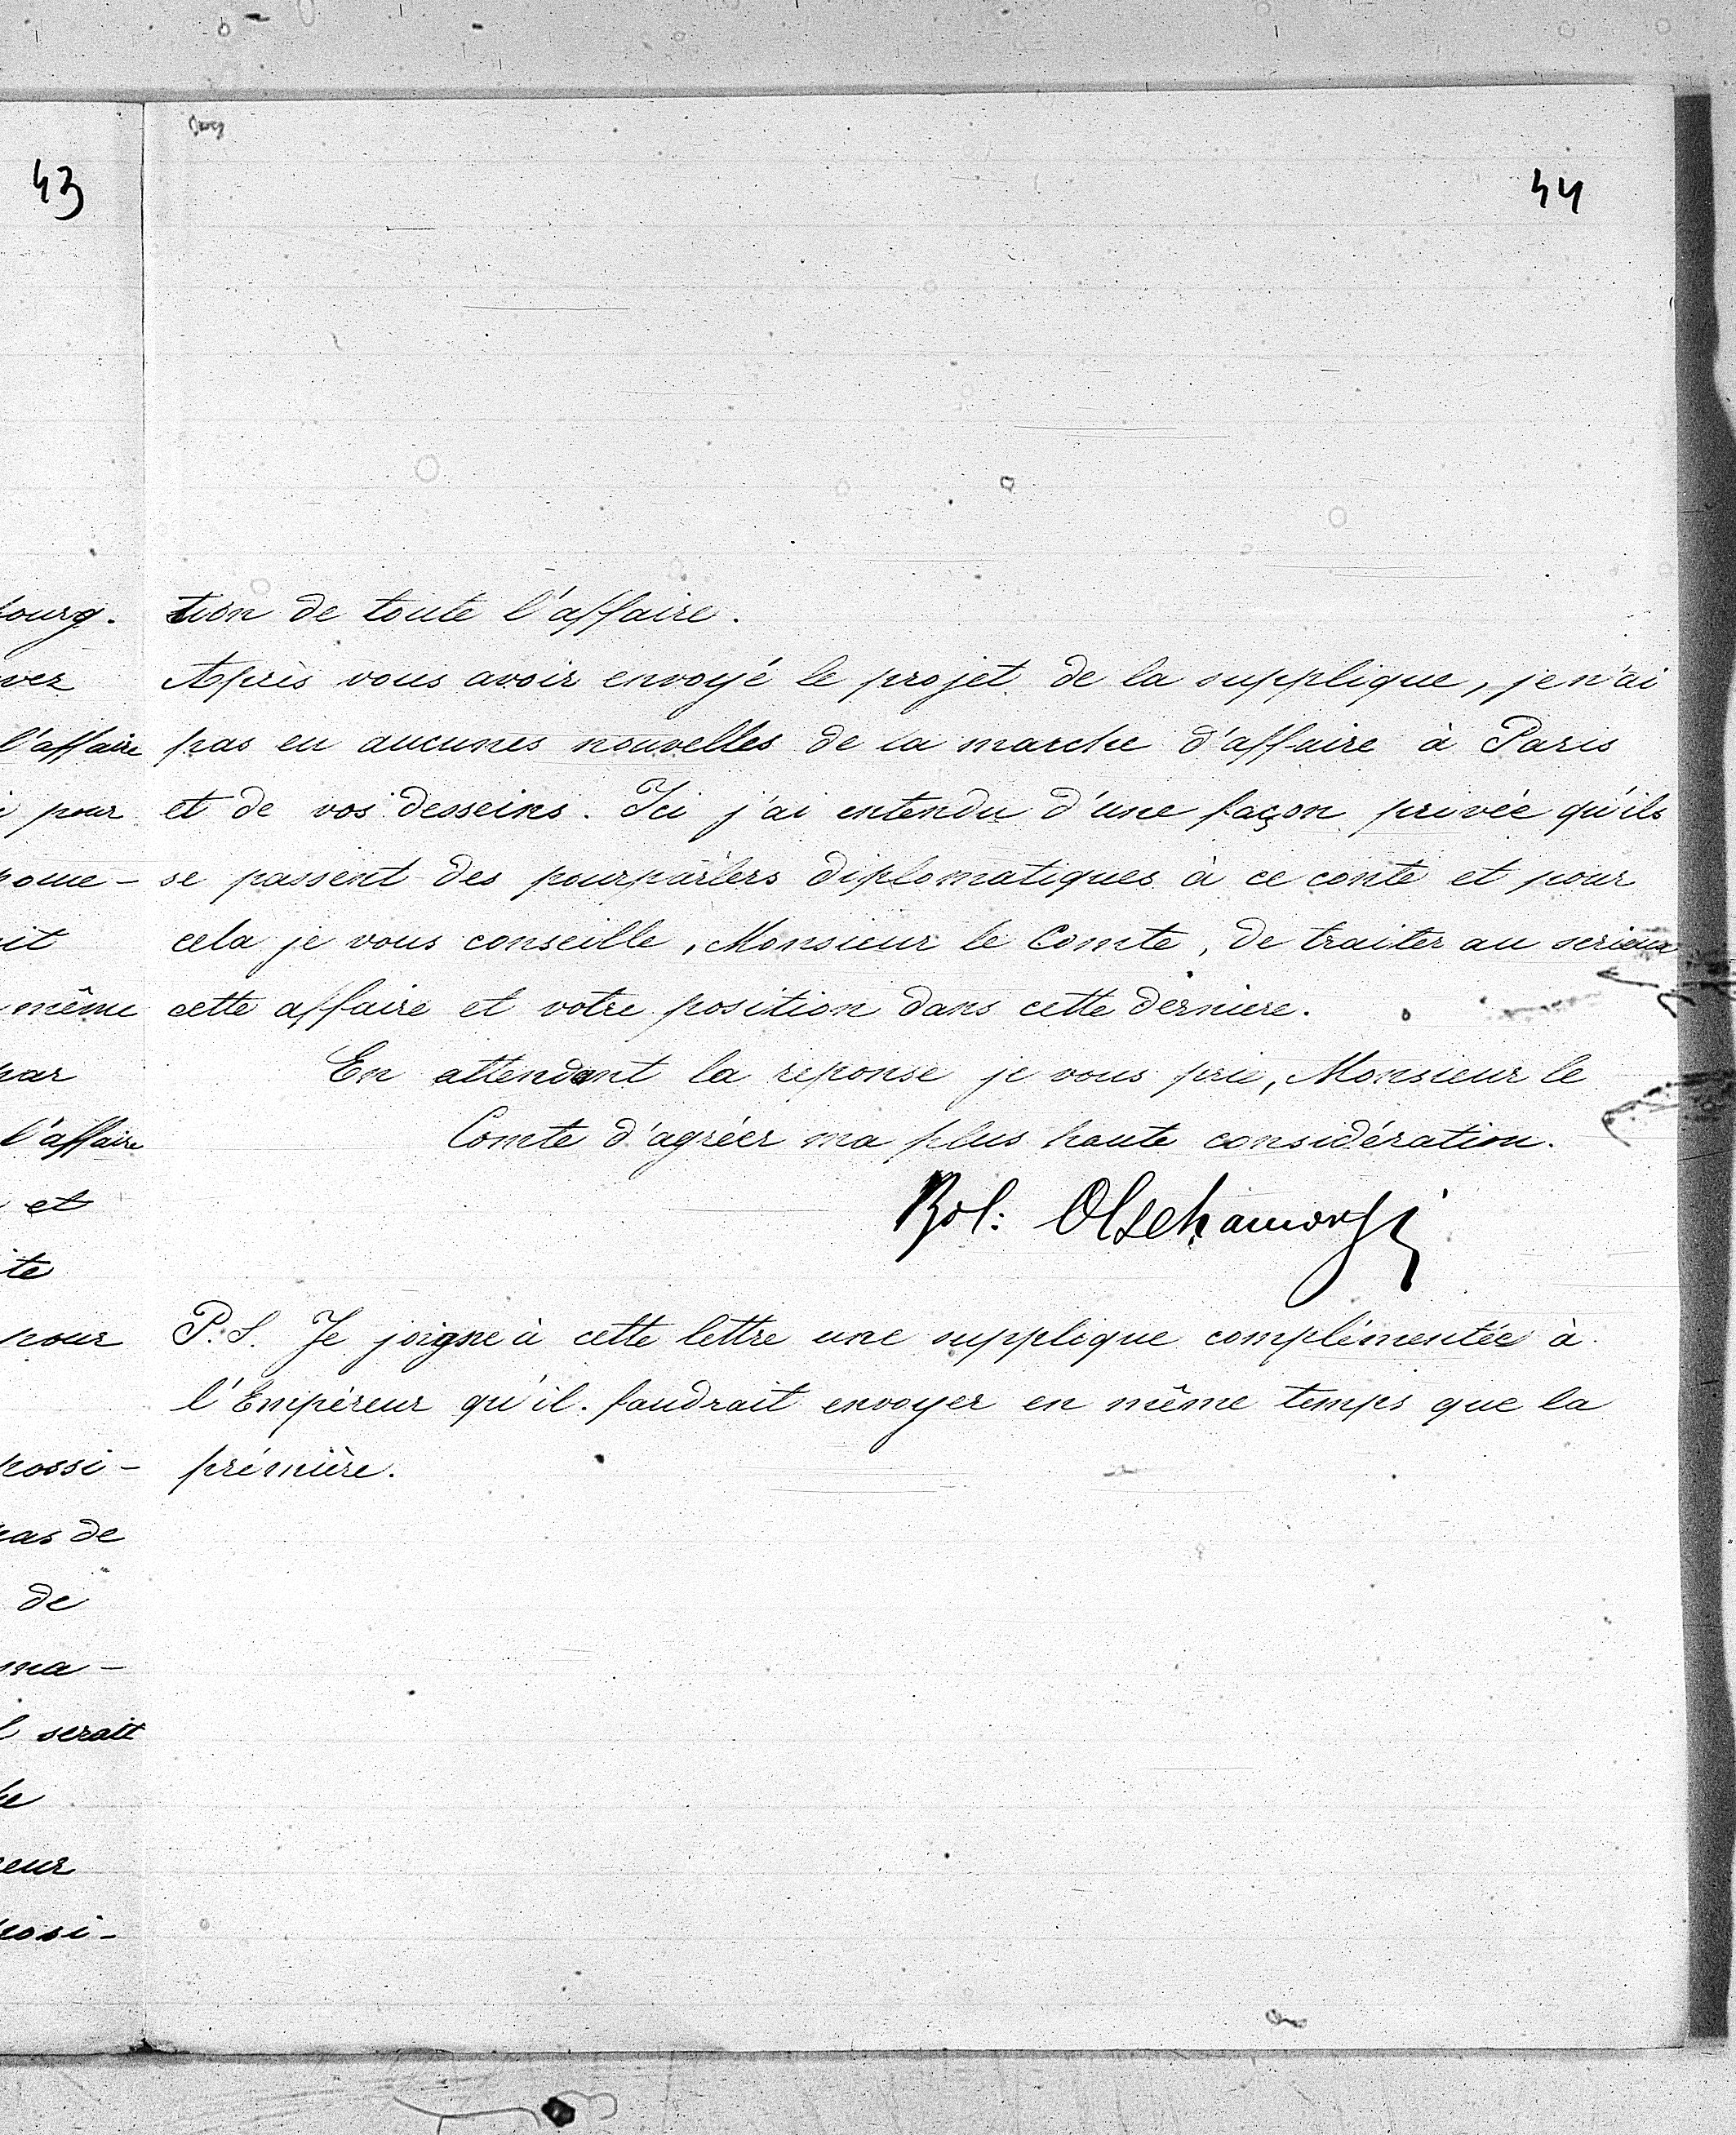 43
bourg.
vez
l'affaire
pour
même
par
l'affaire
et
pour
possi-
pas de
de
serait
posi-
44
tion de toute l'affaire.
Après vous avoir envoyé le projet de la supplique, je n'ai
pas eu aucunes nouvelles de la marche d'affaire à Paris
et de vos desseins. Ici j'ai entendu d'une façon privée qu'ils
se passent des pourparlers diplomatiques à ce conte et pour
cela je vous conseille, Monsieur le Comte, de traiter au serieux
cette affaire et votre position dans cette derniere.
En attendant la reponse je vous prie, Monsieur le
Comte d'agréer ma plus haute considération.
Bol: Olschamowski
P.S. Je joigne à cette lettre une supplique complémentée à
l'Empéreur qu'il faudrait envoyer en même temps que la
prémière.